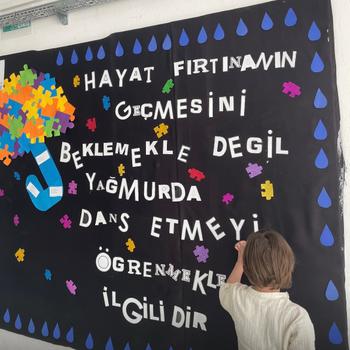 HAYAT FIRTINANIN
GEÇMESİNİ
BEKLEMEKLE DEĞİL
YAĞMURDA
DANS ETMEYİ
ÖĞRENMEKLE
İLGİLİDİR